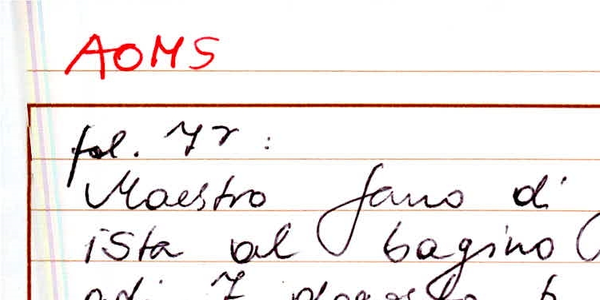 AOMS
fol. 7r:
Maestro Jano di
ista al bagino
adi 7